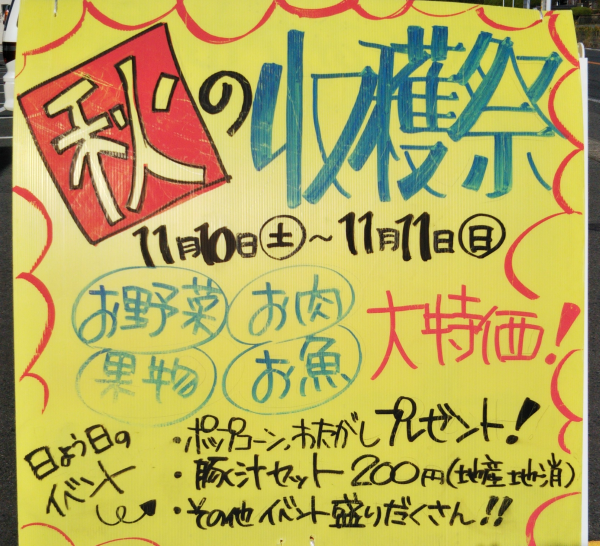 秋の収穫祭
11月10日(土)～11月11日(日)
お野菜 お肉
果物 お魚
大特価!
日よう日の
イベント
・ポップコーン、わたがしプレゼント!
・豚汁セット 200円(地産地消)
・その他イベント盛りだくさん!!